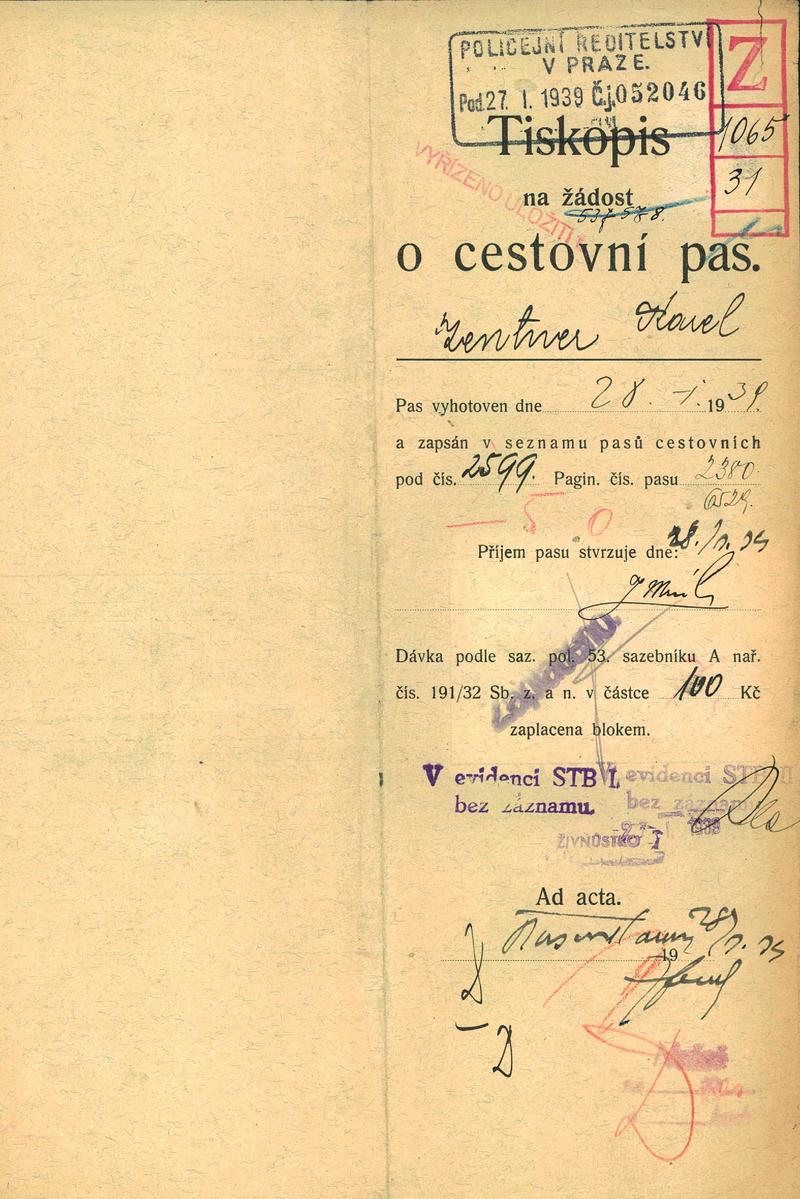 POLICEJNÍ ŘEDITELSTVÍ
V PRAZE.
Pod. 27. I. 1939 Č.j. 052046
Z
1065
31
Tiskopis
VYŘÍZENO ULOŽITI!
na žádost
537578.
o cestovní pas.
Zentner Karel
Pas vyhotoven dne 28. I. 1939.
a zapsán v seznamu pasů cestovních
pod čís. 2599. Pagin. čís. pasu 2380
— 5 0
Příjem pasu stvrzuje dne: 28./1. 39
Dávka podle saz. pol. 53. sazebníku A nař.
čís. 191/32 Sb. z. a n. v částce 100 Kč
zaplacena blokem.
V evidenci STB I. V evidenci STB II
bez záznamu. bez záznamu
Ad acta.
28/1. 39
19
D
D